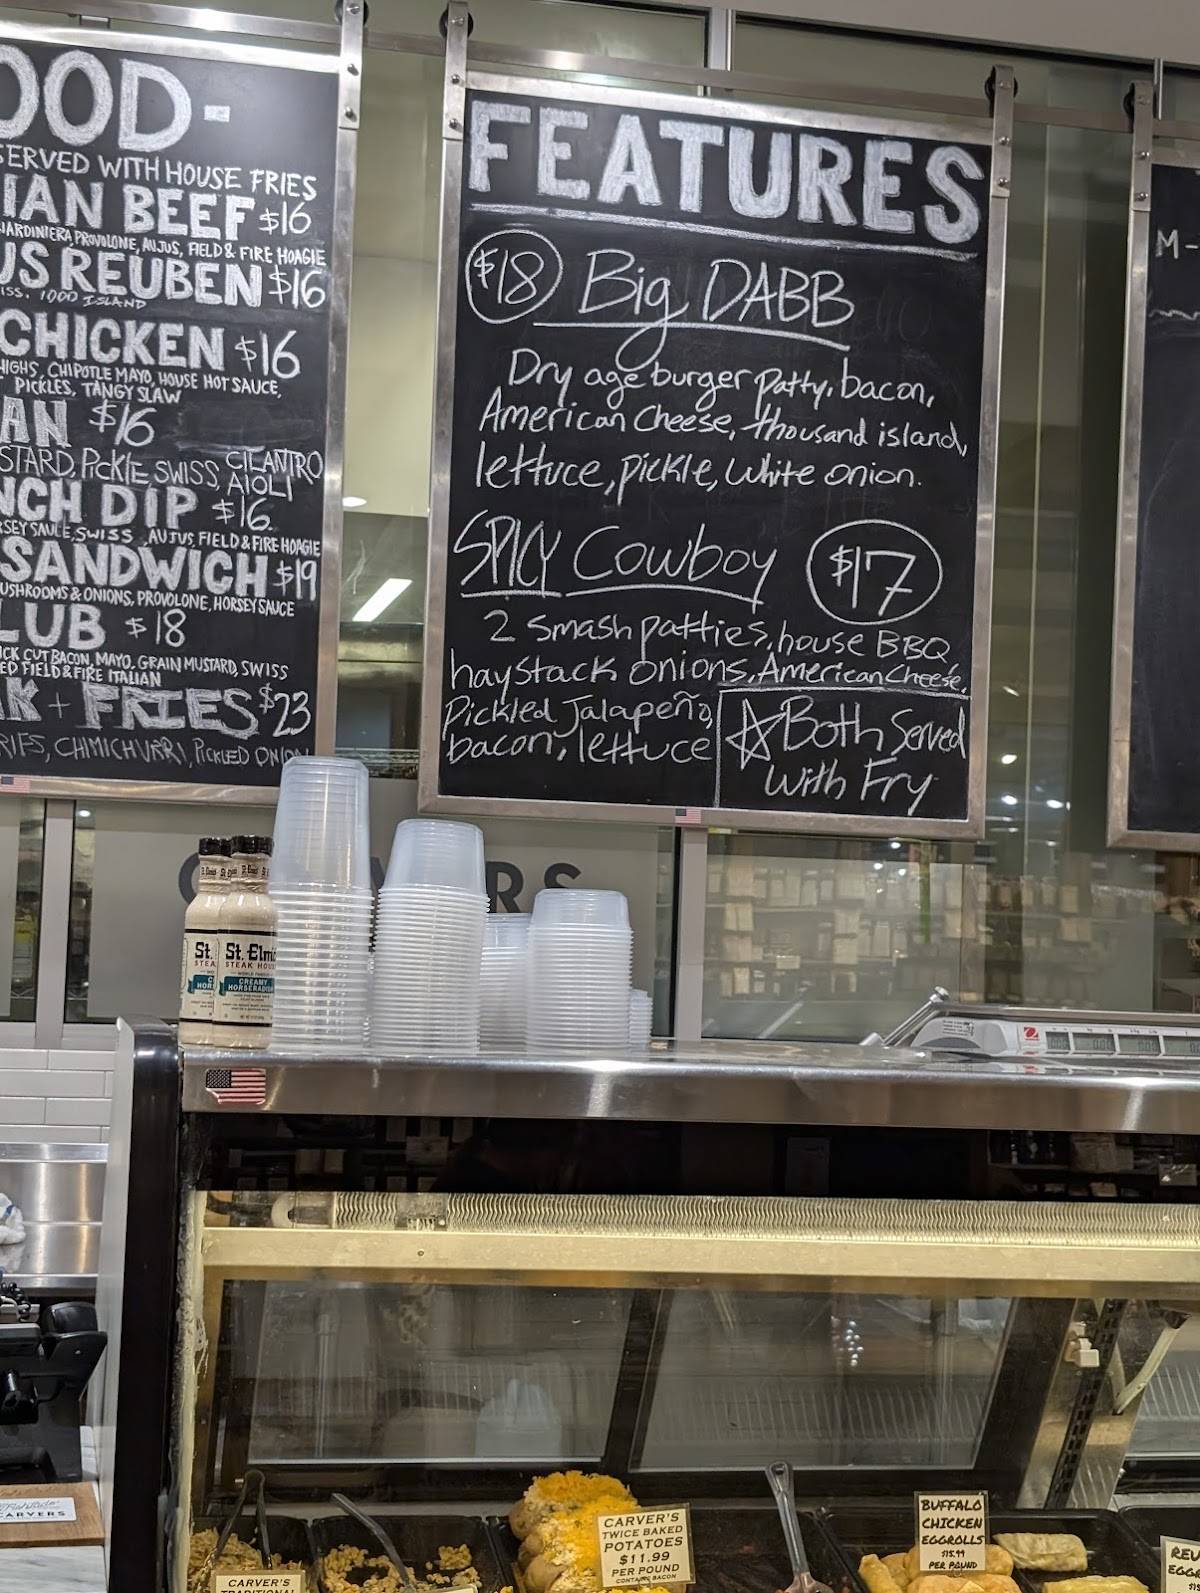 OOD-
SERVED WITH HOUSE FRIES
IAN BEEF $16
GIARDINIERA, PROVOLONE, AU JUS, FIELD & FIRE HOAGIE
US REUBEN $16
ISS, 1000 ISLAND
CHICKEN $16
HIGHS, CHIPOTLE MAYO, HOUSE HOT SAUCE,
PICKLES, TANGY SLAW
AN $16
STARD, PICKLE, SWISS, CILANTRO
AIOLI
NCH DIP $16
RSEY SAUCE, SWISS, AU JUS, FIELD & FIRE HOAGIE
SANDWICH $19
USHROOMS & ONIONS, PROVOLONE, HORSEY SAUCE
LUB $18
ICK CUT BACON, MAYO, GRAIN MUSTARD, SWISS
ED FIELD & FIRE ITALIAN
K + FRIES $23
RIFS, CHIMICHURRI, PICKLED ONION
FEATURES
$18 Big DABB
Dry age burger patty, bacon,
American Cheese, thousand island,
lettuce, pickle, white onion.
SPICY Cowboy $17
2 smash patties, house BBQ,
haystack onions, American Cheese,
Pickled Jalapeño,
bacon, lettuce
Both Served
with Fry
M-
St. Elmo
STEAK HOUSE
CREAMY
HORSERADISH
ERS
CARVERS
CARVER'S
TWICE BAKED
POTATOES
$11.99
PER POUND
CONTAINS BACON
BUFFALO
CHICKEN
EGGROLLS
$15.99
PER POUND
CARVER'S
TRADITIONAL
REU
EGG